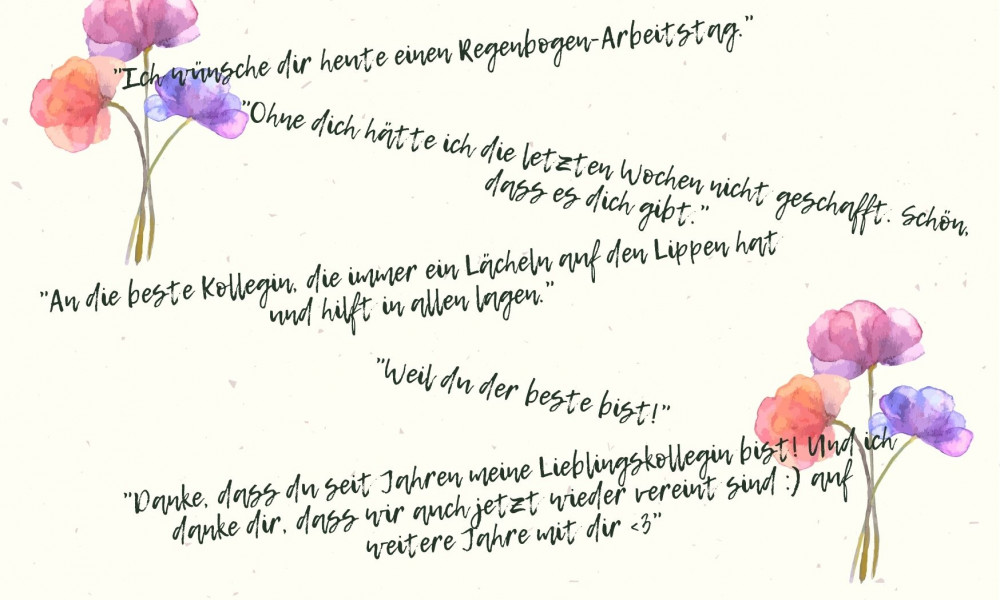 "Ich wünsche dir heute einen Regenbogen-Arbeitstag."
"Ohne dich hätte ich die letzten Wochen nicht geschafft. Schön,
dass es dich gibt."
"An die beste Kollegin, die immer ein Lächeln auf den Lippen hat
und hilft in allen lagen."
"Weil du der beste bist!"
"Danke, dass du seit Jahren meine Lieblingskollegin bist! Und ich
danke dir, dass wir auch jetzt wieder vereint sind :) auf
weitere Jahre mit dir <3"